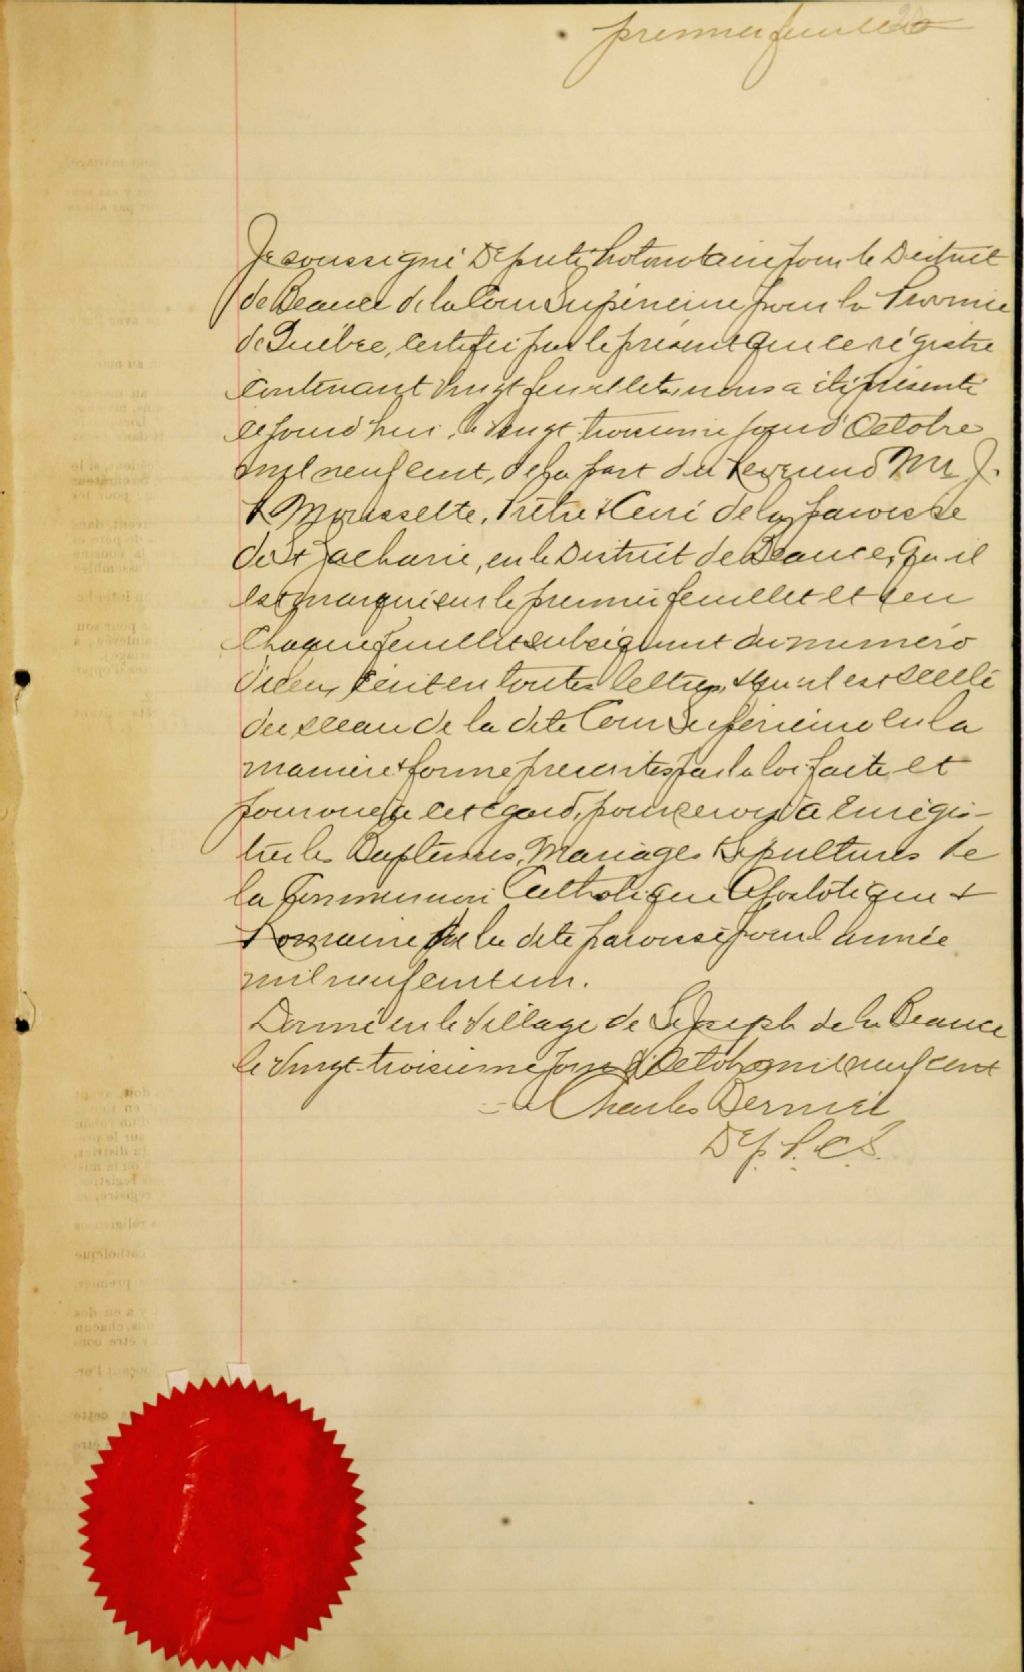 premier feuillet
Je soussigné Député Protonotaire pour le District
de Beauce de la Cour Supérieure pour la Province
de Québec, certifie par le présent que ce régistre
contenant vingt feuillets, nous a été présenté
ce jourd'hui, le vingt troisième jour d'Octobre
mil neuf cent, de la part du Révérend Mr J.
Mousselte, Prêtre & Curé de la paroisse
de St Zacharie, en le District de Beauce, qu'il
est marqué sur le premier feuillet et sur
chaque feuillet subséquent du numéro
d'icelui, écrit en toutes lettres, & qu'il est scellé
du sceau de la dite Cour Supérieure en la
manière & forme prescrites par la loi faite et
pourvue à cet égard, pour servir à Enrégis-
trer les Baptêmes, Mariages & Sépultures de
la Communion Catholique Apostolique &
Romaine de la dite paroisse pour l'année
mil neuf cent un.
Donné en le Village de St Joseph de la Beauce
le vingt-troisième jour d'Octobre mil neuf cent
Charles Bernier
Dép. P. C. S.